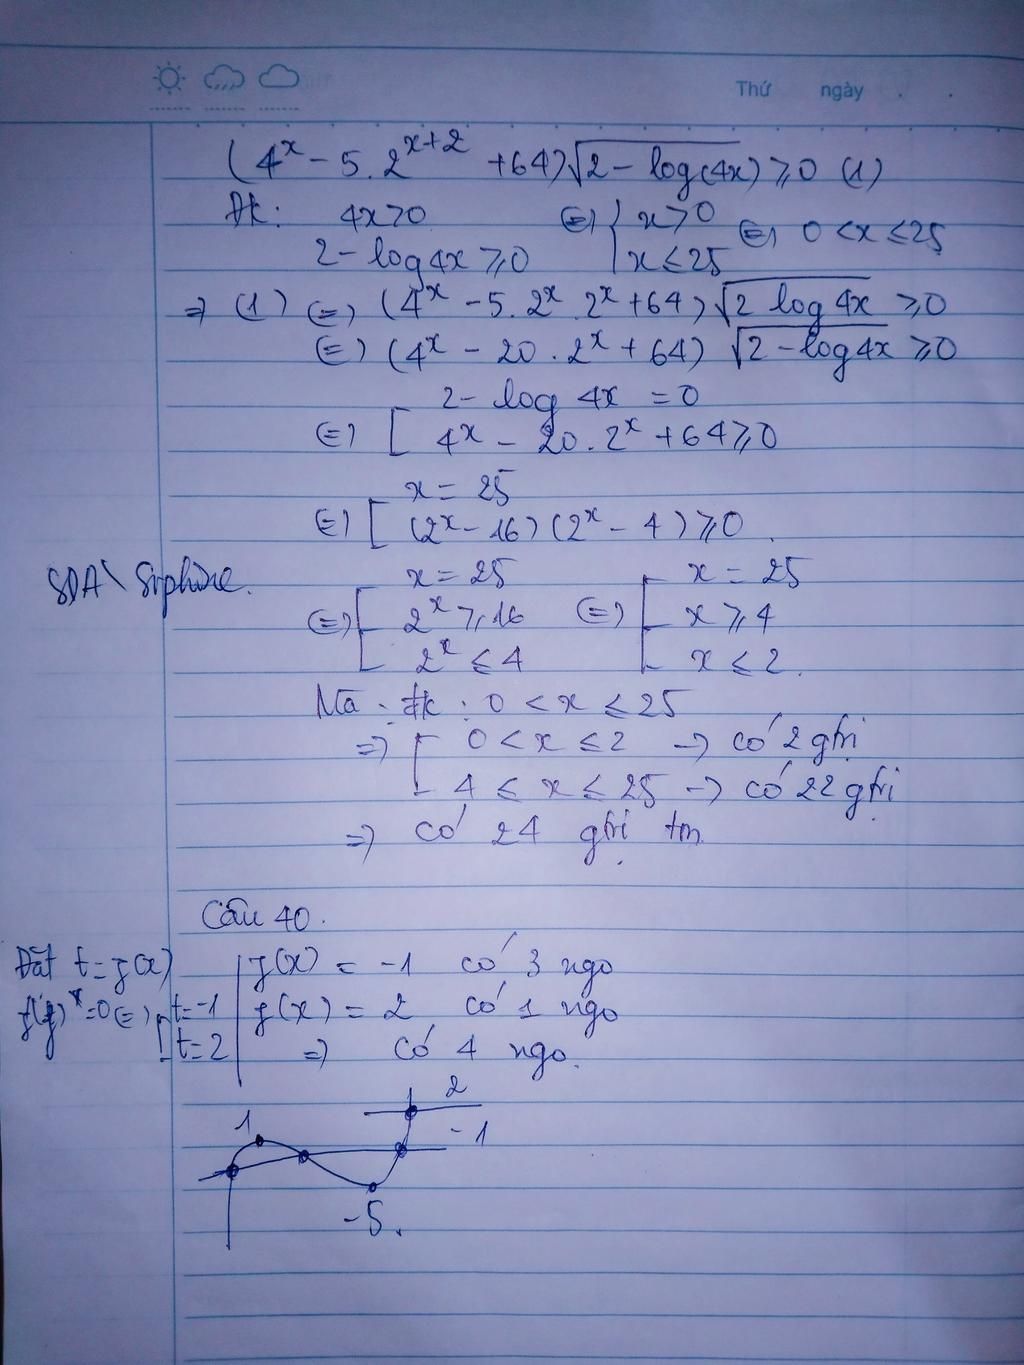 Thứ ngày
(4^x - 5.2^{x+2} + 64)√(2 - log(4x)) ≥ 0 (1)
Đk: 4x > 0 (=) { x > 0 (=) 0 < x ≤ 25
2 - log4x ≥ 0 x ≤ 25
=> (1) (=) (4^x - 5.2^x.2^x + 64) √(2 log 4x) ≥ 0
(=) (4^x - 20.2^x + 64) √(2 - log4x) ≥ 0
2 - log 4x = 0
(=) [ 4^x - 20.2^x + 64 ≥ 0
x = 25
(=) [ (2^x - 16)(2^x - 4) ≥ 0.
x = 25 x = 25
(=) [ 2^x ≥ 16 (=) [ x ≥ 4
2^x ≤ 4 x ≤ 2.
Mà đk: 0 < x ≤ 25
=> [ 0 < x ≤ 2 -> có 2 gtrị
4 ≤ x ≤ 25 -> có 22 gtrị
=> có 24 gtrị tm
Câu 40.
Đặt t = f(x) f(x) = -1 có 3 ngo
=0 (=) [ t = -1 f(x) = 2 có 1 ngo
t = 2 => có 4 ngo.
2
1 -1
-5.